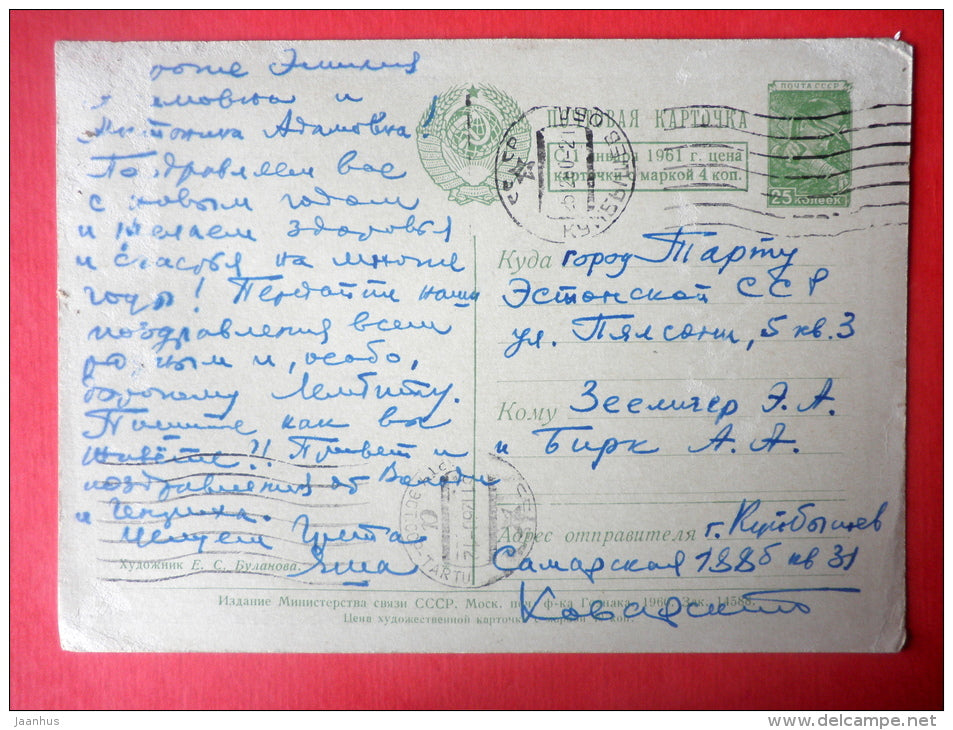 Эмилия
и
Антонина Адамовна!
Поздравляем вас
с новым годом
и желаем здоровья
и счастья на многие
годы! Передайте наши
поздравления всем
родным и, особо,
дорогому Лембиту.
Пишите как вы
живёте?! Привет и
поздравления от Вали
и Генриха.
Целуем Грета
Яша
Художник Е. С. Буланова.
ПОЧТА СССР
25 КОПЕЕК
ПОЧТОВАЯ КАРТОЧКА
С 1 января 1961 г. цена
карточки с маркой 4 коп.
СССР
КУЙБЫШЕВ
Куда город Тарту
Эстонской ССР
ул. Пялсони, 5 кв. 3
Кому Зеелигер Э. А.
и Бирк А. А.
TARTU
Адрес отправителя г. Куйбышев
Самарская 188б кв 31
Издание Министерства связи СССР. Моск. печ. ф-ка Гознака. 1960. Зак. 14588.
Цена художественной карточки с маркой коп.
jaanhus
delcampe.net